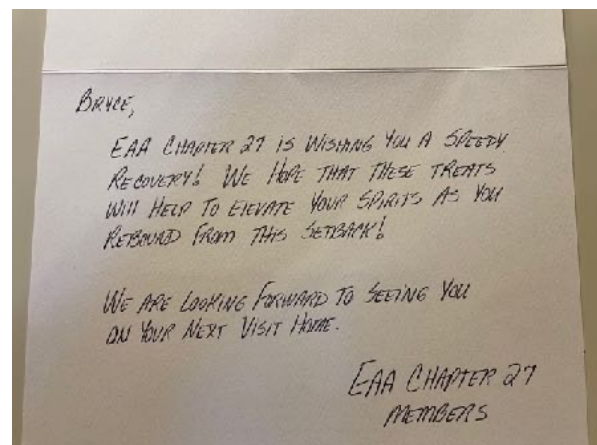 BRYCE,
EAA CHAPTER 27 IS WISHING YOU A SPEEDY
RECOVERY! WE HOPE THAT THESE TREATS
WILL HELP TO ELEVATE YOUR SPIRITS AS YOU
REBOUND FROM THIS SETBACK!
WE ARE LOOKING FORWARD TO SEEING YOU
ON YOUR NEXT VISIT HOME.
EAA CHAPTER 27
MEMBERS